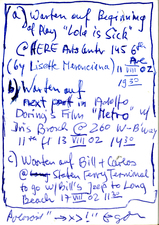 a) Warten auf Beginning
of Play "Lola is Sick"
@ HERE Arts Centr 145 6th Ave
(by Lisette Marenciana) 11 VIII 02
19 30
b) Warten auf
next part in Adolfo
Doring's Film "Metro" w/
Iris Broch @ 260 W-Biway
11th fl 13 VIII 02 14 30
c) Warten auf Bill + Carlos
@ Staten Ferry Terminal
to go w/ Bill's Jeep to Long
Beach 17 VIII 02 11